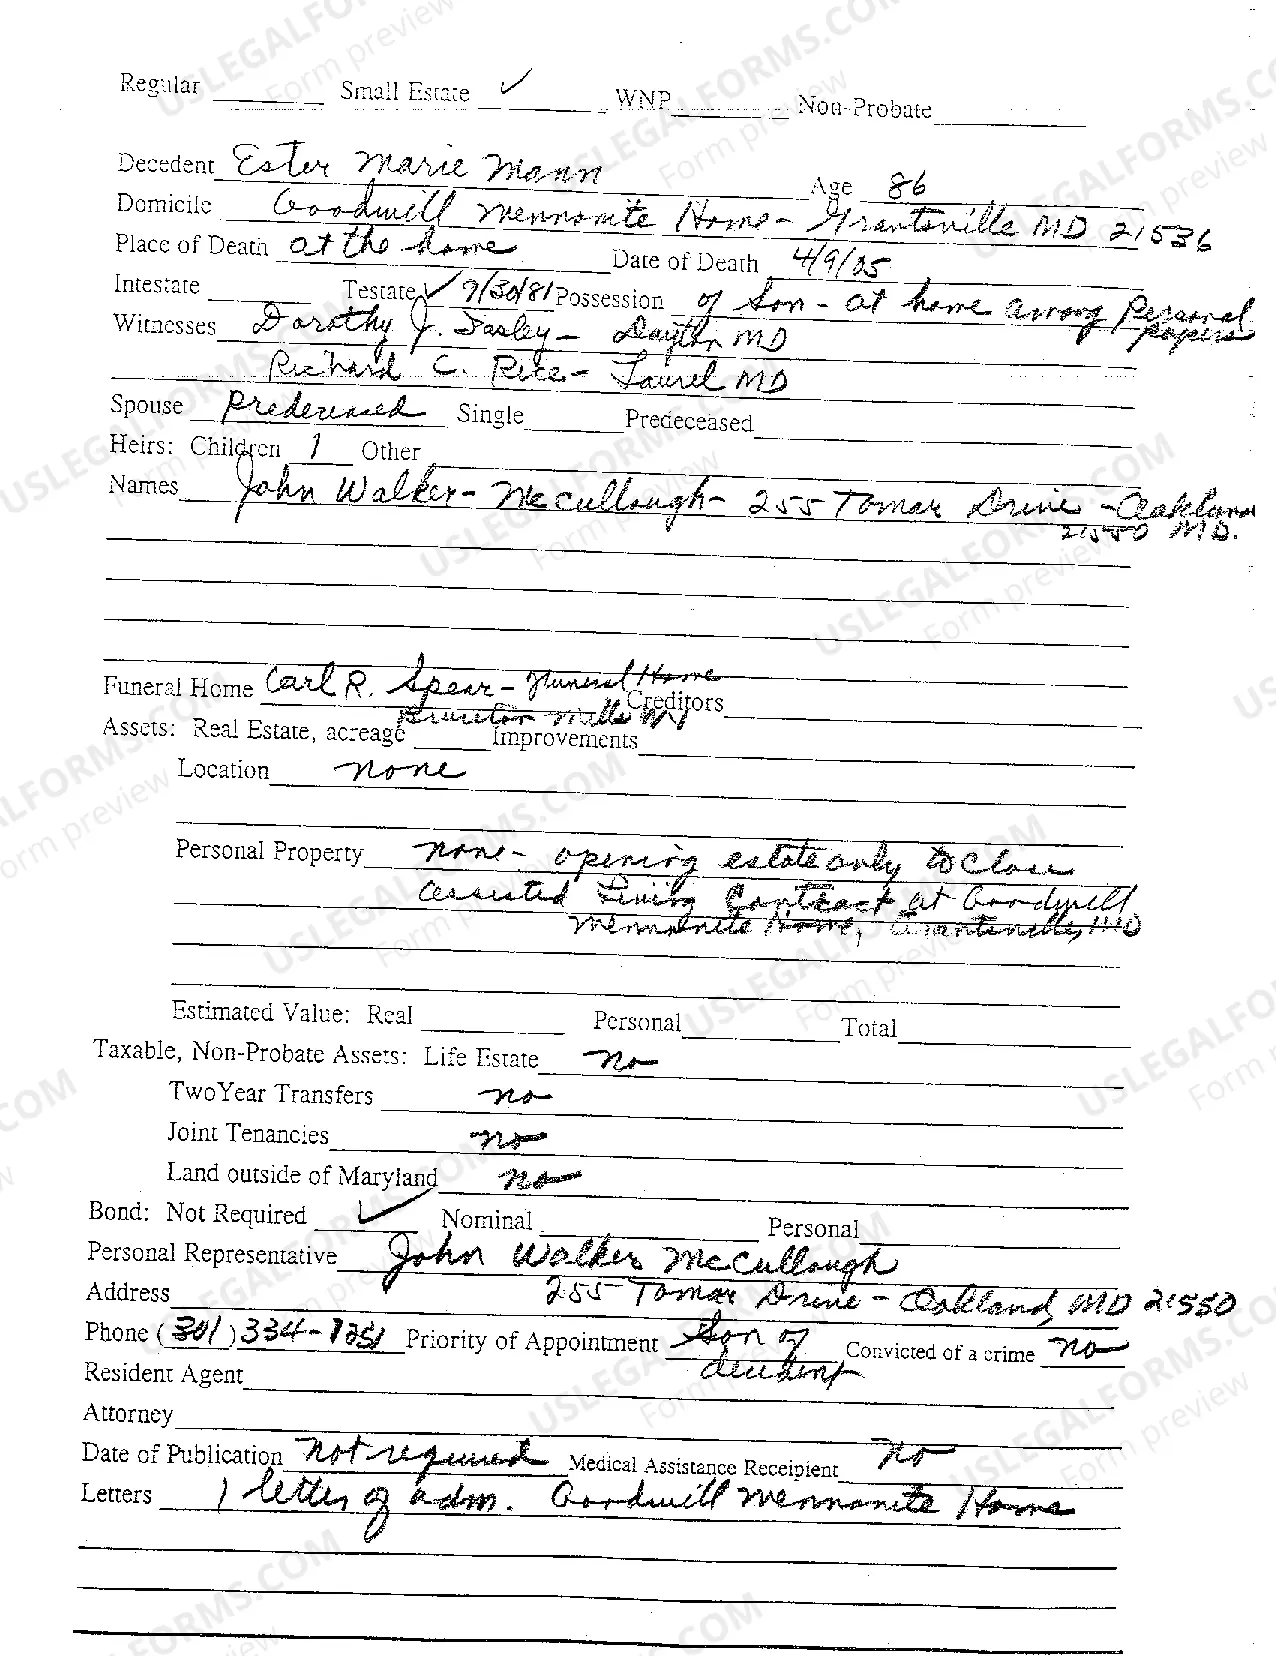 Regular Small Estate ✓ WNP Non-Probate
Decedent Ester Marie Mann Age 86
Domicile Goodwill Mennonite Home - Grantsville MD 21536
Place of Death at the home Date of Death 4/9/05
Intestate Testate ✓ 9/30/81 Possession of Son - at home among Personal
papers
Witnesses Dorothy J. - Dayton MD
Richard C. Rice - Laurel MD
Spouse Predeceased Single Predeceased
Heirs: Children 1 Other
Names John Walker - McCullough - 255 Tomar Drive - Oakland
21550 MD.
Funeral Home Carl R. Spear - Funeral Home
Creditors
Mills
Assets: Real Estate, acreage Improvements
Location none
Personal Property none - opening estate only to close
assisted Living Contract at Goodwill
Mennonite Home, Grantsville, MD
Estimated Value: Real Personal Total
Taxable, Non-Probate Assets: Life Estate no
TwoYear Transfers no
Joint Tenancies no
Land outside of Maryland no
Bond: Not Required ✓ Nominal Personal
Personal Representative John Walker McCullough
Address 255 Tomar Drive - Oakland, MD 21550
Phone (301) 334- Priority of Appointment Son of Convicted of a crime no
decedent
Resident Agent
Attorney
Date of Publication not required Medical Assistance Receipient no
Letters 1 letter of adm. Goodwill Mennonite Home
USLEGALFORMS.COM
Form preview